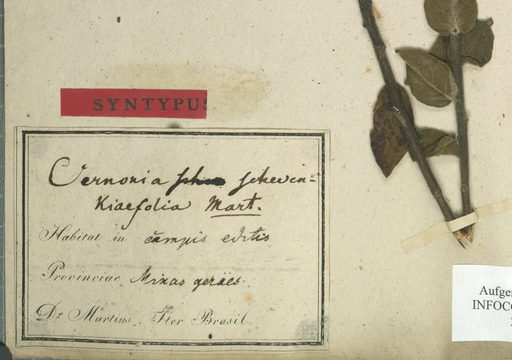 SYNTYPUS
Vernonia scheven-
kiaefolia Mart.
Habitat in campis editis
Provinciae Minas geraes.
Dr Martius, Iter Brasil
Aufge
INFOCO